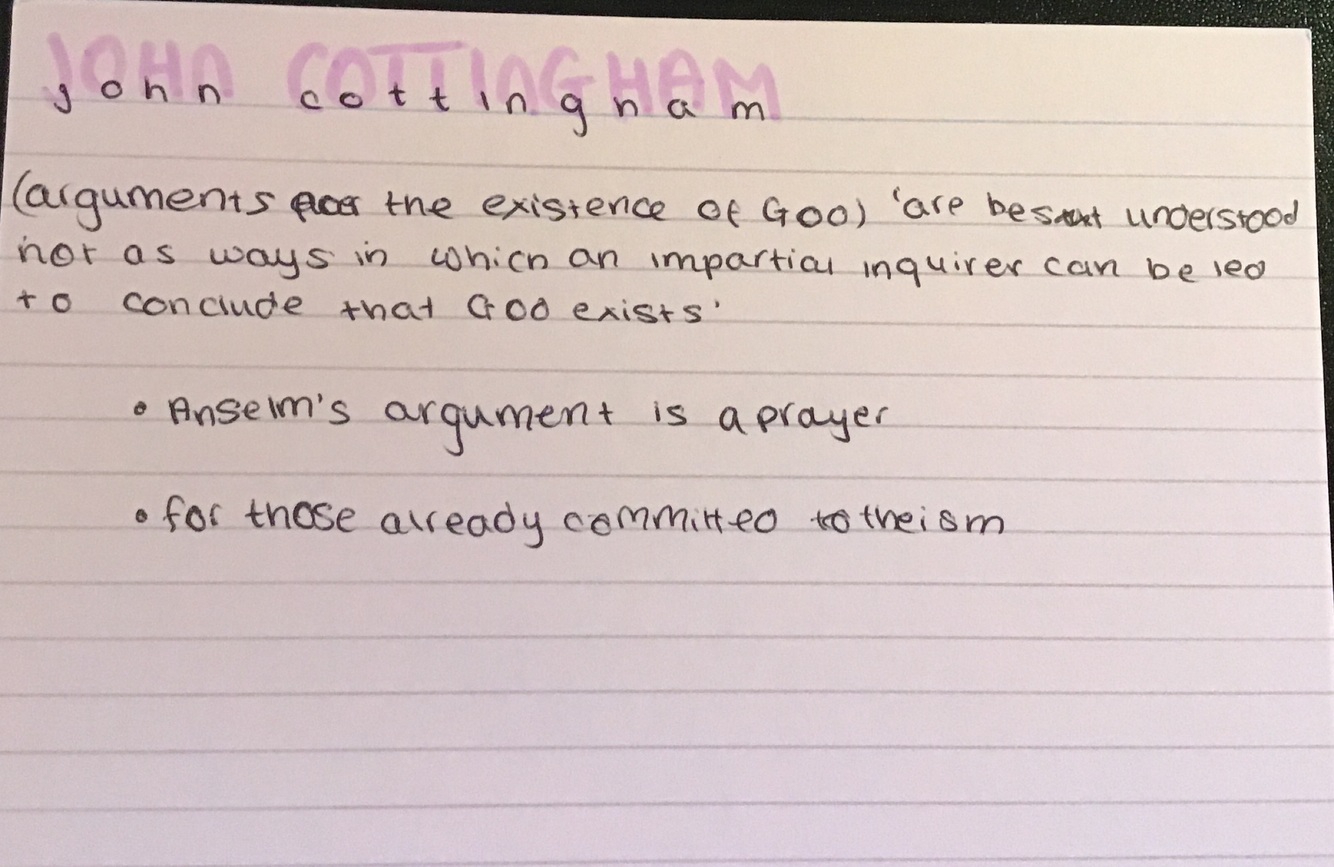 JOHN COTTINGHAM
john cottingham
(arguments for the existence of God) 'are best understood
not as ways in which an impartial inquirer can be led
to conclude that God exists'
• Anselm's argument is a prayer
• for those already committed to theism